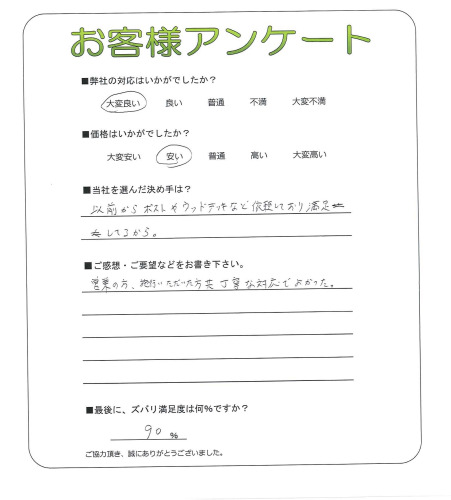 お客様アンケート
■弊社の対応はいかがでしたか?
大変良い 良い 普通 不満 大変不満
■価格はいかがでしたか?
大変安い 安い 普通 高い 大変高い
■当社を選んだ決め手は?
以前からポストやウッドデッキなど依頼しており満足
してるから。
■ご感想・ご要望などをお書き下さい。
営業の方、施行いただいた方共丁寧な対応でよかった。
■最後に、ズバリ満足度は何%ですか?
90 %
ご協力頂き、誠にありがとうございました。